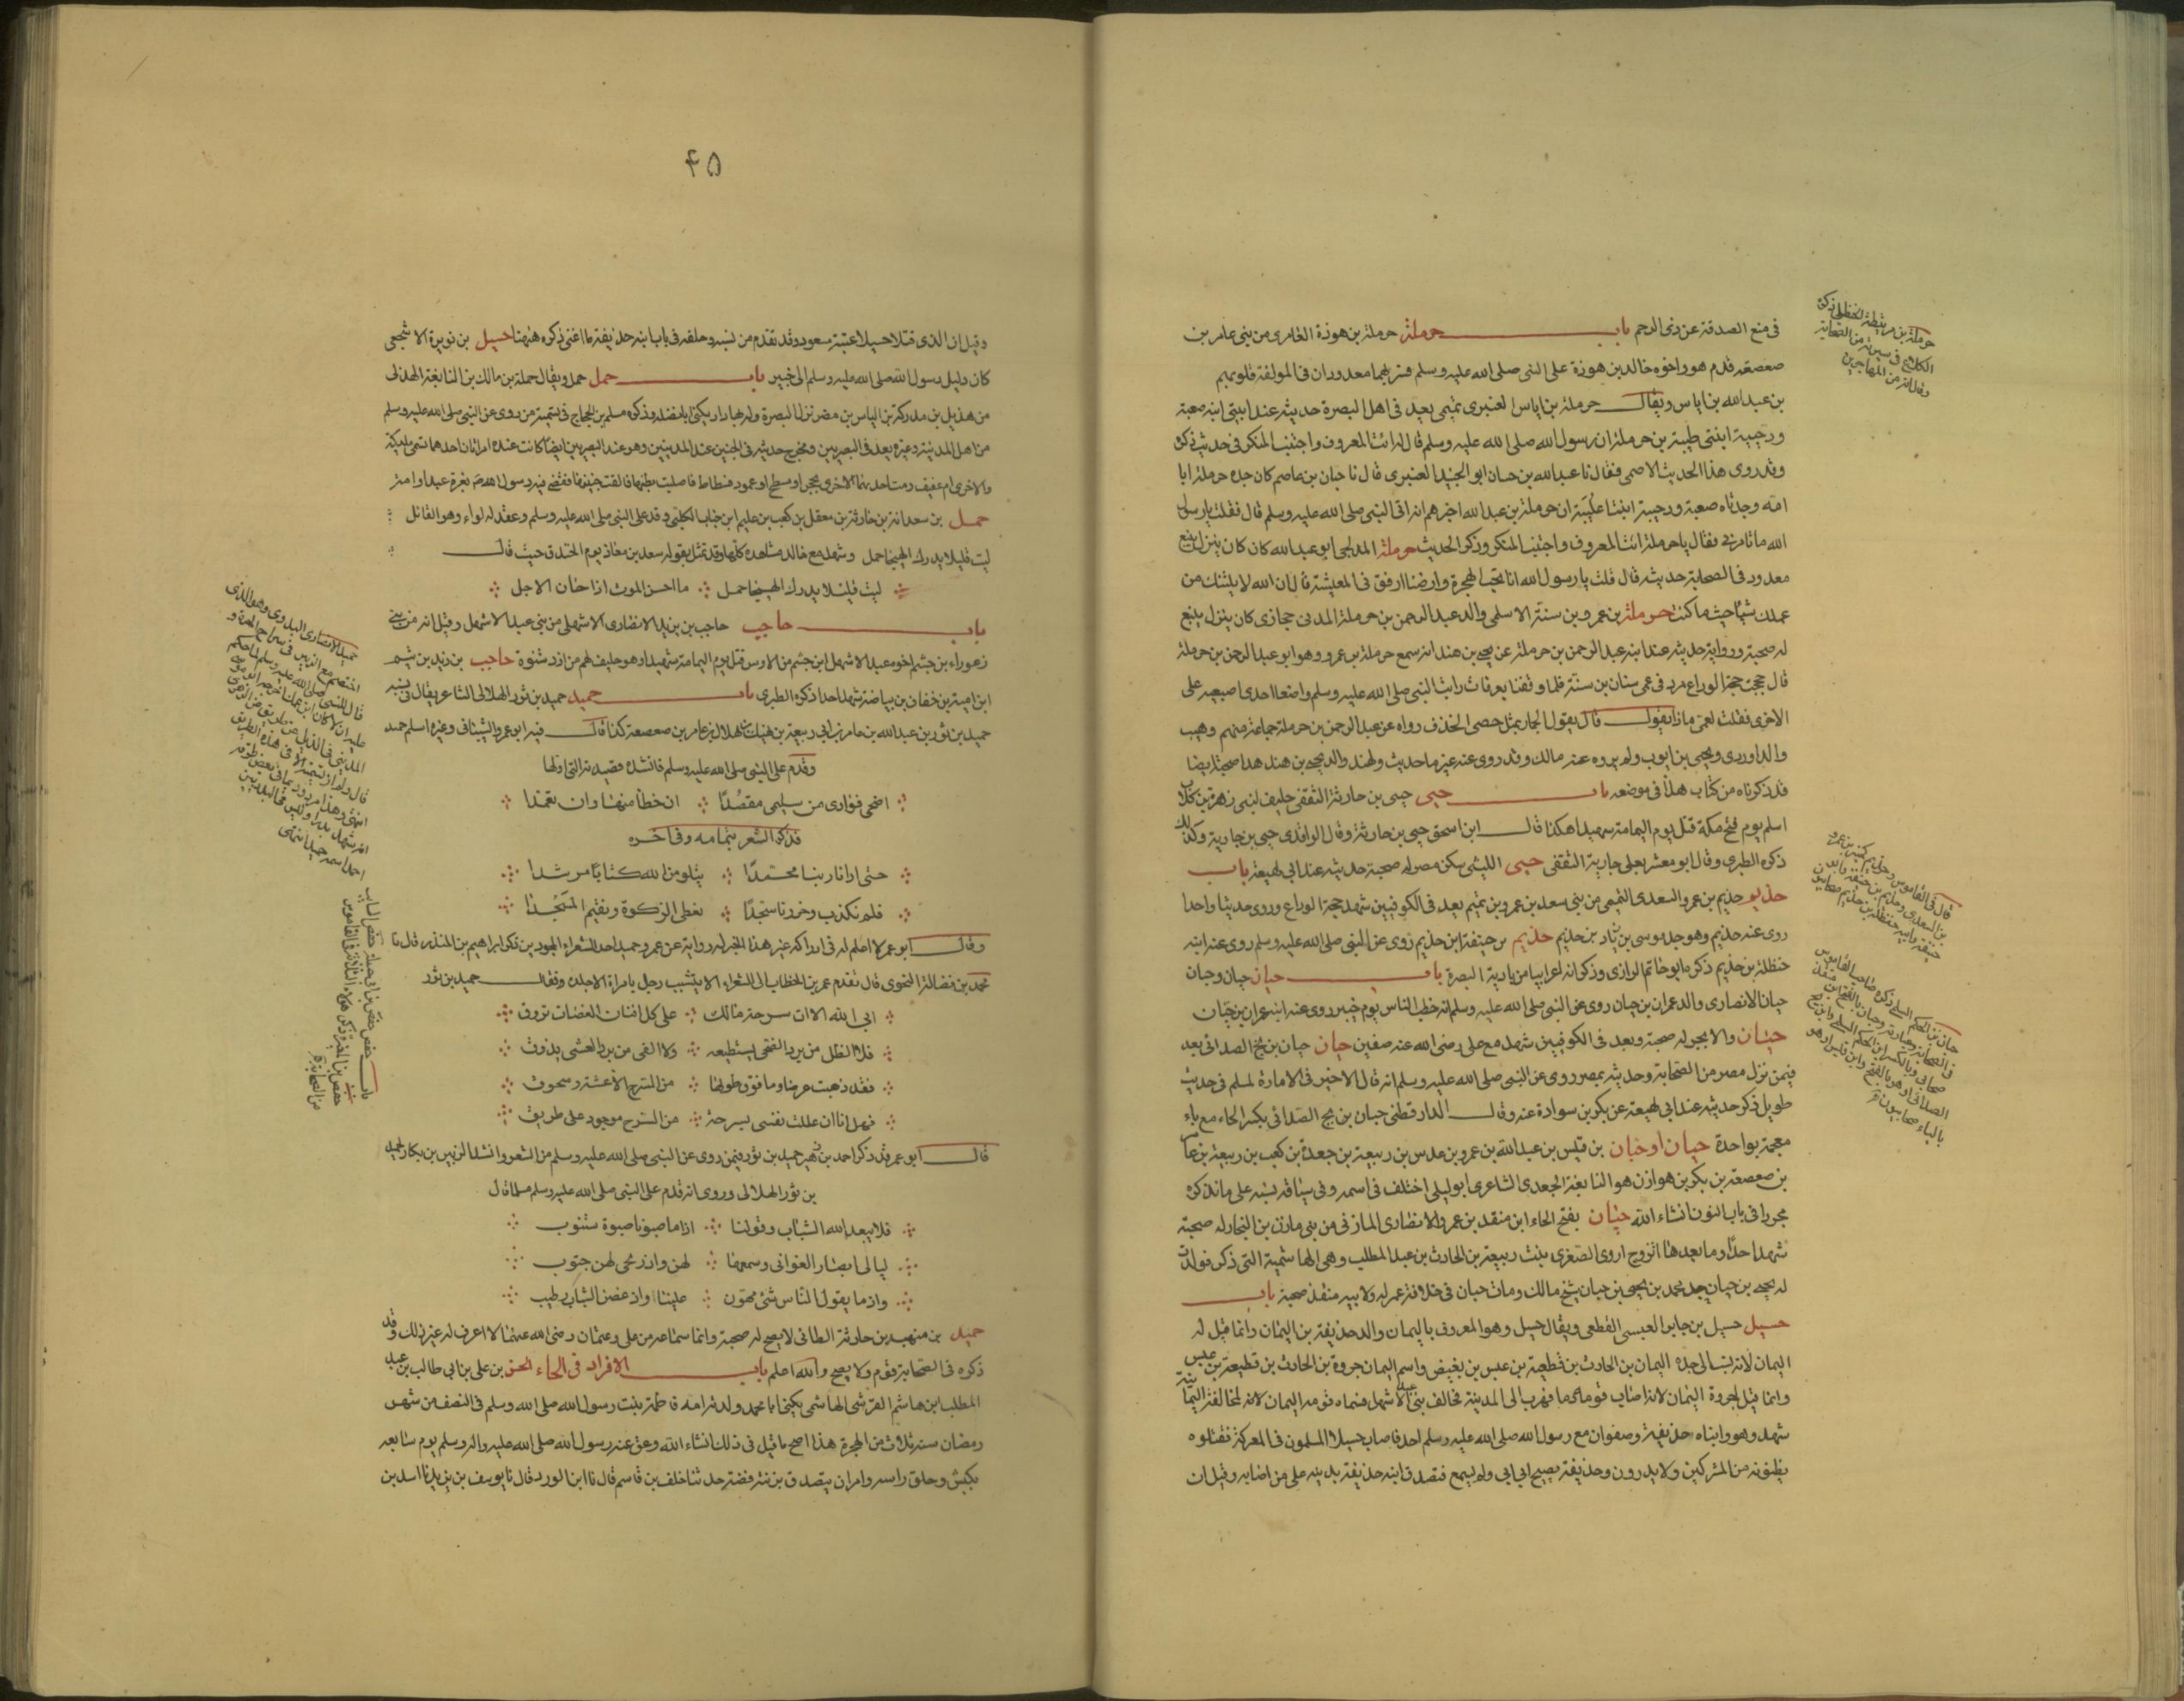 في منع الصدقة عن ذى الرحم باب حرملة حرملة بن هوذة العامرى من بنى عامر بن
صعصعة قدم هو واخوه خالد بن هوذة على النبى صلى الله عليه وسلم فسر بهما معدودان في المولفة قلوبهم
بن عبد الله بن اياس ويقال حرملة بن اياس العنبرى تميمى يعد في اهل البصرة حديثه عند ابنتى ابنه صفية
ودحيبة ابنتى عليبة بن حرملة ان رسول الله صلى الله عليه وسلم قال له ائت المعروف واجتنب المنكر في حديث ذكره
وقد روى هذا الحديث الاصمى فقال نا عبد الله بن حسان ابو الجنيد العنبرى قال نا حبان بن عاصم كان جده حرملة ابا
امه وجدتاه صفية ودحيبة ابنتا عليبة ان حرملة بن عبد الله اخبرهم انه اتى النبى صلى الله عليه وسلم قال فقلت يا رسول
الله ما تامرنى فقال يا حرملة ائت المعروف واجتنب المنكر وذكر الحديث حرملة المدلجى ابو عبد الله كان كان ينزل ينبع
معدود في الصحابة حديثه قال قلت يا رسول الله انا نحب الهجرة وارضنا ارفق في المعيشة قال ان الله لا يلتك من
عملك شيئا حيث ما كنت حرملة بن عمرو بن سنة الاسلمى والد عبد الرحمن بن حرملة المدنى حجازى كان ينزل ينبع
له صحبة ورواية حديثه عند ابنه عبد الرحمن بن حرملة عن يحيى بن هند انه سمع حرملة بن عمرو وهو ابو عبد الرحمن بن حرملة
قال حججت حجة الوداع مردفى عمى سنان بن سنة فلما وقفنا بعرفات رايت النبى صلى الله عليه وسلم واضعا احدى اصبعيه على
الاخرى فقلت لعمى ماذا يقول قال يقول الجمار بمثل حصى الخذف رواه عن عبد الرحمن بن حرملة جماعة منهم وهيب
والدراوردى ويحيى بن ايوب ولم يروه عنه مالك وقد روى عنه غير ما حديث ولهند والد يحيى بن هند هذا صحبة ايضا
قد ذكرناه من كتاب هذا في موضعه باب حيى حيى بن حارثة الثقفى حليف لبنى زهرة بن كلاب
اسلم يوم فتح مكة قتل يوم اليمامة شهيدا هكذا قال ابن اسحق حيى بن حارثة وقال الواقدى حيى بن جارية وكذلك
ذكره الطبرى وقال ابو معشر يعلى جارية الثقفى حيى الليثى سكن مصر له صحبة حديثه عند ابى لهيعة باب
حذيم حذيم بن عمرو السعدى التميمى من بنى سعد بن عمرو بن تميم يعد في الكوفيين شهد حجة الوداع وروى حديثا واحدا
روى عنه حذيم وهو جد موسى بن زياد بن حذيم حذيم بن حنيفة ابن حذيم روى عن النبى صلى الله عليه وسلم روى عنه ابنه
حنظلة بن حذيم ذكره ابو حاتم الرازى وذكر انه اعرابيا من بادية البصرة باب حبان حبان وحبان
حبان الانصارى والد عمران بن حبان روى عن النبى صلى الله عليه وسلم انه خطب الناس يوم خيبر روى عنه ابنه عمران بن حبان
حيان والابجر له صحبة ويعد في الكوفيين شهد مع على رضى الله عنه صفين حبان حبان بن بح الصدائى يعد
فيمن نزل مصر من الصحابة وحديثه بمصر روى عن النبى صلى الله عليه وسلم انه قال لا خير في الامارة لمسلم في حديث
طويل ذكر حديثه عند ابى لهيعة عن بكر بن سوادة عنه وقال الدارقطنى حبان بن بح الصدائى بكسر الحاء مع باء
معجمة بواحدة حبان او حيان بن قيس بن عبد الله بن عمرو بن عدس بن ربيعة بن جعدة بن كعب بن ربيعة بن عامر
بن صعصعة بن بكر بن هوازن هو النابغة الجعدى الشاعر ابو ليلى اختلف في اسمه وفى سياقة نسبه على ما نذكره
مجودا في باب النون انشاء الله حبان بفتح الحاء ابن منقذ بن عمرو الانصارى المازنى من بنى مازن بن النجار له صحبة
شهد احدا وما بعدها تزوج اروى الصغرى بنت ربيعة بن الحارث بن عبد المطلب وهى الهاشمية التى ذكر فولدت
له يحيى بن حبان جد محمد بن يحيى بن حبان شيخ مالك ومات حبان في خلافة عمر له ولابيه منقذ صحبة باب
حسيل حسيل بن جابر العبسى القطعى ويقال حسل وهو المعروف باليمان والد حذيفة بن اليمان وانما قيل له
اليمان لانه نسب الى جده اليمان بن الحارث بن قطيعة بن عبس بن بغيض واسم اليمان جروة بن الحارث بن قطيعة بن عبس
وانما قيل لجروة اليمان لانه اصاب في قومه دما فهرب الى المدينة فحالف بنى عبد الاشهل فسماه قومه اليمان لانه لمحالفة اليمانية
شهد هو وابناه حذيفة وصفوان مع رسول الله صلى الله عليه وسلم احدا فاصاب حسيلا المسلمون في المعركة فقتلوه
يظنونه من المشركين ولا يدرون وحذيفة يصيح ابى ابى ولم يسمع فتصدق ابنه حذيفة بديته على من اصابه وقيل ان
حرملة بن مريطة الحنظلى ذكره
الكلاعى في سيرته من الصحابة
وقال انه من المهاجرين
قال في القاموس وحذيم كمنبر بن عمرو
بن السعدى وحذيم بن حنيفة
حنيفة وابنه حنظلة بن حذيم صحابيون
بالباء صحابيون
۴۵
وقيل ان الذى قتل حسيلا عتبة بن مسعود وقد تقدم من نسبه وحلفه في باب ابنه حذيفة ما اغنى ذكره ههنا حسيل بن نويرة الاشجعى
كان دليل رسول الله صلى الله عليه وسلم الى خيبر باب حمل حمل ويقال حملة بن مالك بن النابغة الهذلى
من هذيل بن مدركة بن الياس بن مضر نزل البصرة وله بها دار يكنى ابا نضلة وذكره مسلم بن الحجاج في تسمية من روى عن النبى صلى الله عليه وسلم
من اهل المدينة وغيره يعد في البصريين ومخرج حديثه في الجنين عند المدنيين وهو عند البصريين ايضا كانت عنده امرأتان احدهما تسمى مليكة
والاخرى ام عفيف رمت احدهما الاخرى بحجر او مسطح او عمود فسطاط فاصابت بطنها فالقت جنينها فقضى فيه رسول الله ص بغرة عبد او امة
حمل بن سعدانة بن حارثة بن معقل بن كعب بن عليم ابن جناب الكلبى وفد على النبى صلى الله عليه وسلم وعقد له لواء وهو القائل
لبث قليلا يدرك الهيجا حمل وشهد مع خالد مشاهده كلها وقد تمثل بقوله سعد بن معاذ يوم الخندق حيث قال
لبث قليلا يدرك الهيجا حمل ما احسن الموت اذا حان الاجل
باب حاجب حاجب بن بن يزيد الانصارى الاشهلى من بنى عبد الاشهل وقيل انه من بنى
زعوراء بن جشم اخو عبد الاشهل ابن جشم من الاوس قتل يوم اليمامة شهيدا وهو حليف لهم من ازد شنوة حاجب بن زيد بن تيم
ابن امية بن خفاف بن بياضة شهد احدا ذكره الطبرى باب حميد حميد بن ثور الهلالى الشاعر يقال في نسبه
حميد بن ثور بن عبد الله بن عامر بن ابى ربيعة بن نهيك بن هلال بن عامر بن صعصعة كذا قال فيه ابو عمرو الشيبانى وغيره اسلم حميد
وقدم على النبى صلى الله عليه وسلم فانشده قصيدته التى اولها
اضحى فؤادى من سليمى مقصدا ان خطأ منها وان تعمدا
فذكر الشعر بتمامه وفى آخره
حتى ارانا ربنا محمدا يتلو من الله كتابا مرشدا
فلم نكذب وخررنا سجدا نعطى الزكوة ونقيم المسجدا
وقال ابو عمر لا اعلم له في ادراكه غير هذا الخبر له رواية عن عمر وحميد احد الشعراء المجودين ذكر ابراهيم بن المنذر قال نا
محمد بن فضالة النحوى قال تقدم عمر بن الخطاب الى الشعراء الا يتشبب رجل بامراة الا جلده وفقال حميد بن ثور
ابى الله الا ان سرحة مالك على كل افنان العضات تروق
فلا الظل من برد الضحى يستطيعه ولا الفى من برد العشى يذوق
فقد ذهبت عرضا وما فوق طولها من السرح الا عشة وسحوق
فهل انا ان عللت نفسى بسرحة من السرح موجود على طريق
قال ابو عمر قد ذكر احمد بن زهير حميد بن ثور فيمن روى عن النبى صلى الله عليه وسلم من الشعر وانشد الزبير بن بكار لحميد
بن ثور الهلالى وروى انه قدم على النبى صلى الله عليه وسلم مسلما قال
فلا يبعد الله الشباب وقولنا اذا ما صبونا صبوة سنتوب
ليالى ابصار الغوانى وسمعها لهن واذ ريحى لهن جنوب
واذ ما يقول الناس شئ مهون علينا واذ غصن الشباب رطيب
حميل بن منهب بن حارثة الطائى لا يصح له صحبة وانما سماعه من على وعثمان رضى الله عنهما لا اعرف له غير ذلك وقد
ذكره في الصحابة قوم ولا يصح والله اعلم باب الافراد في الحاء الحسن بن على بن ابى طالب بن عبد
المطلب ابن هاشم القرشى الهاشمى يكنى ابا محمد ولدته امه فاطمة بنت رسول الله صلى الله وسلم في النصف من شهر
رمضان سنة ثلاث من الهجرة هذا اصح ما قيل في ذلك انشاء الله وعق عنه رسول الله صلى الله عليه واله وسلم يوم سابعه
بكبش وحلق راسه وامر ان يتصدق بزنته فضة حدثنا خلف بن قاسم قال نا ابن الورد قال نا يوسف بن يزيد نا اسد بن
حميد الانصارى البدوى وهو الذى
اختصم مع الزبير في شراج الحرة و
من الصحابة